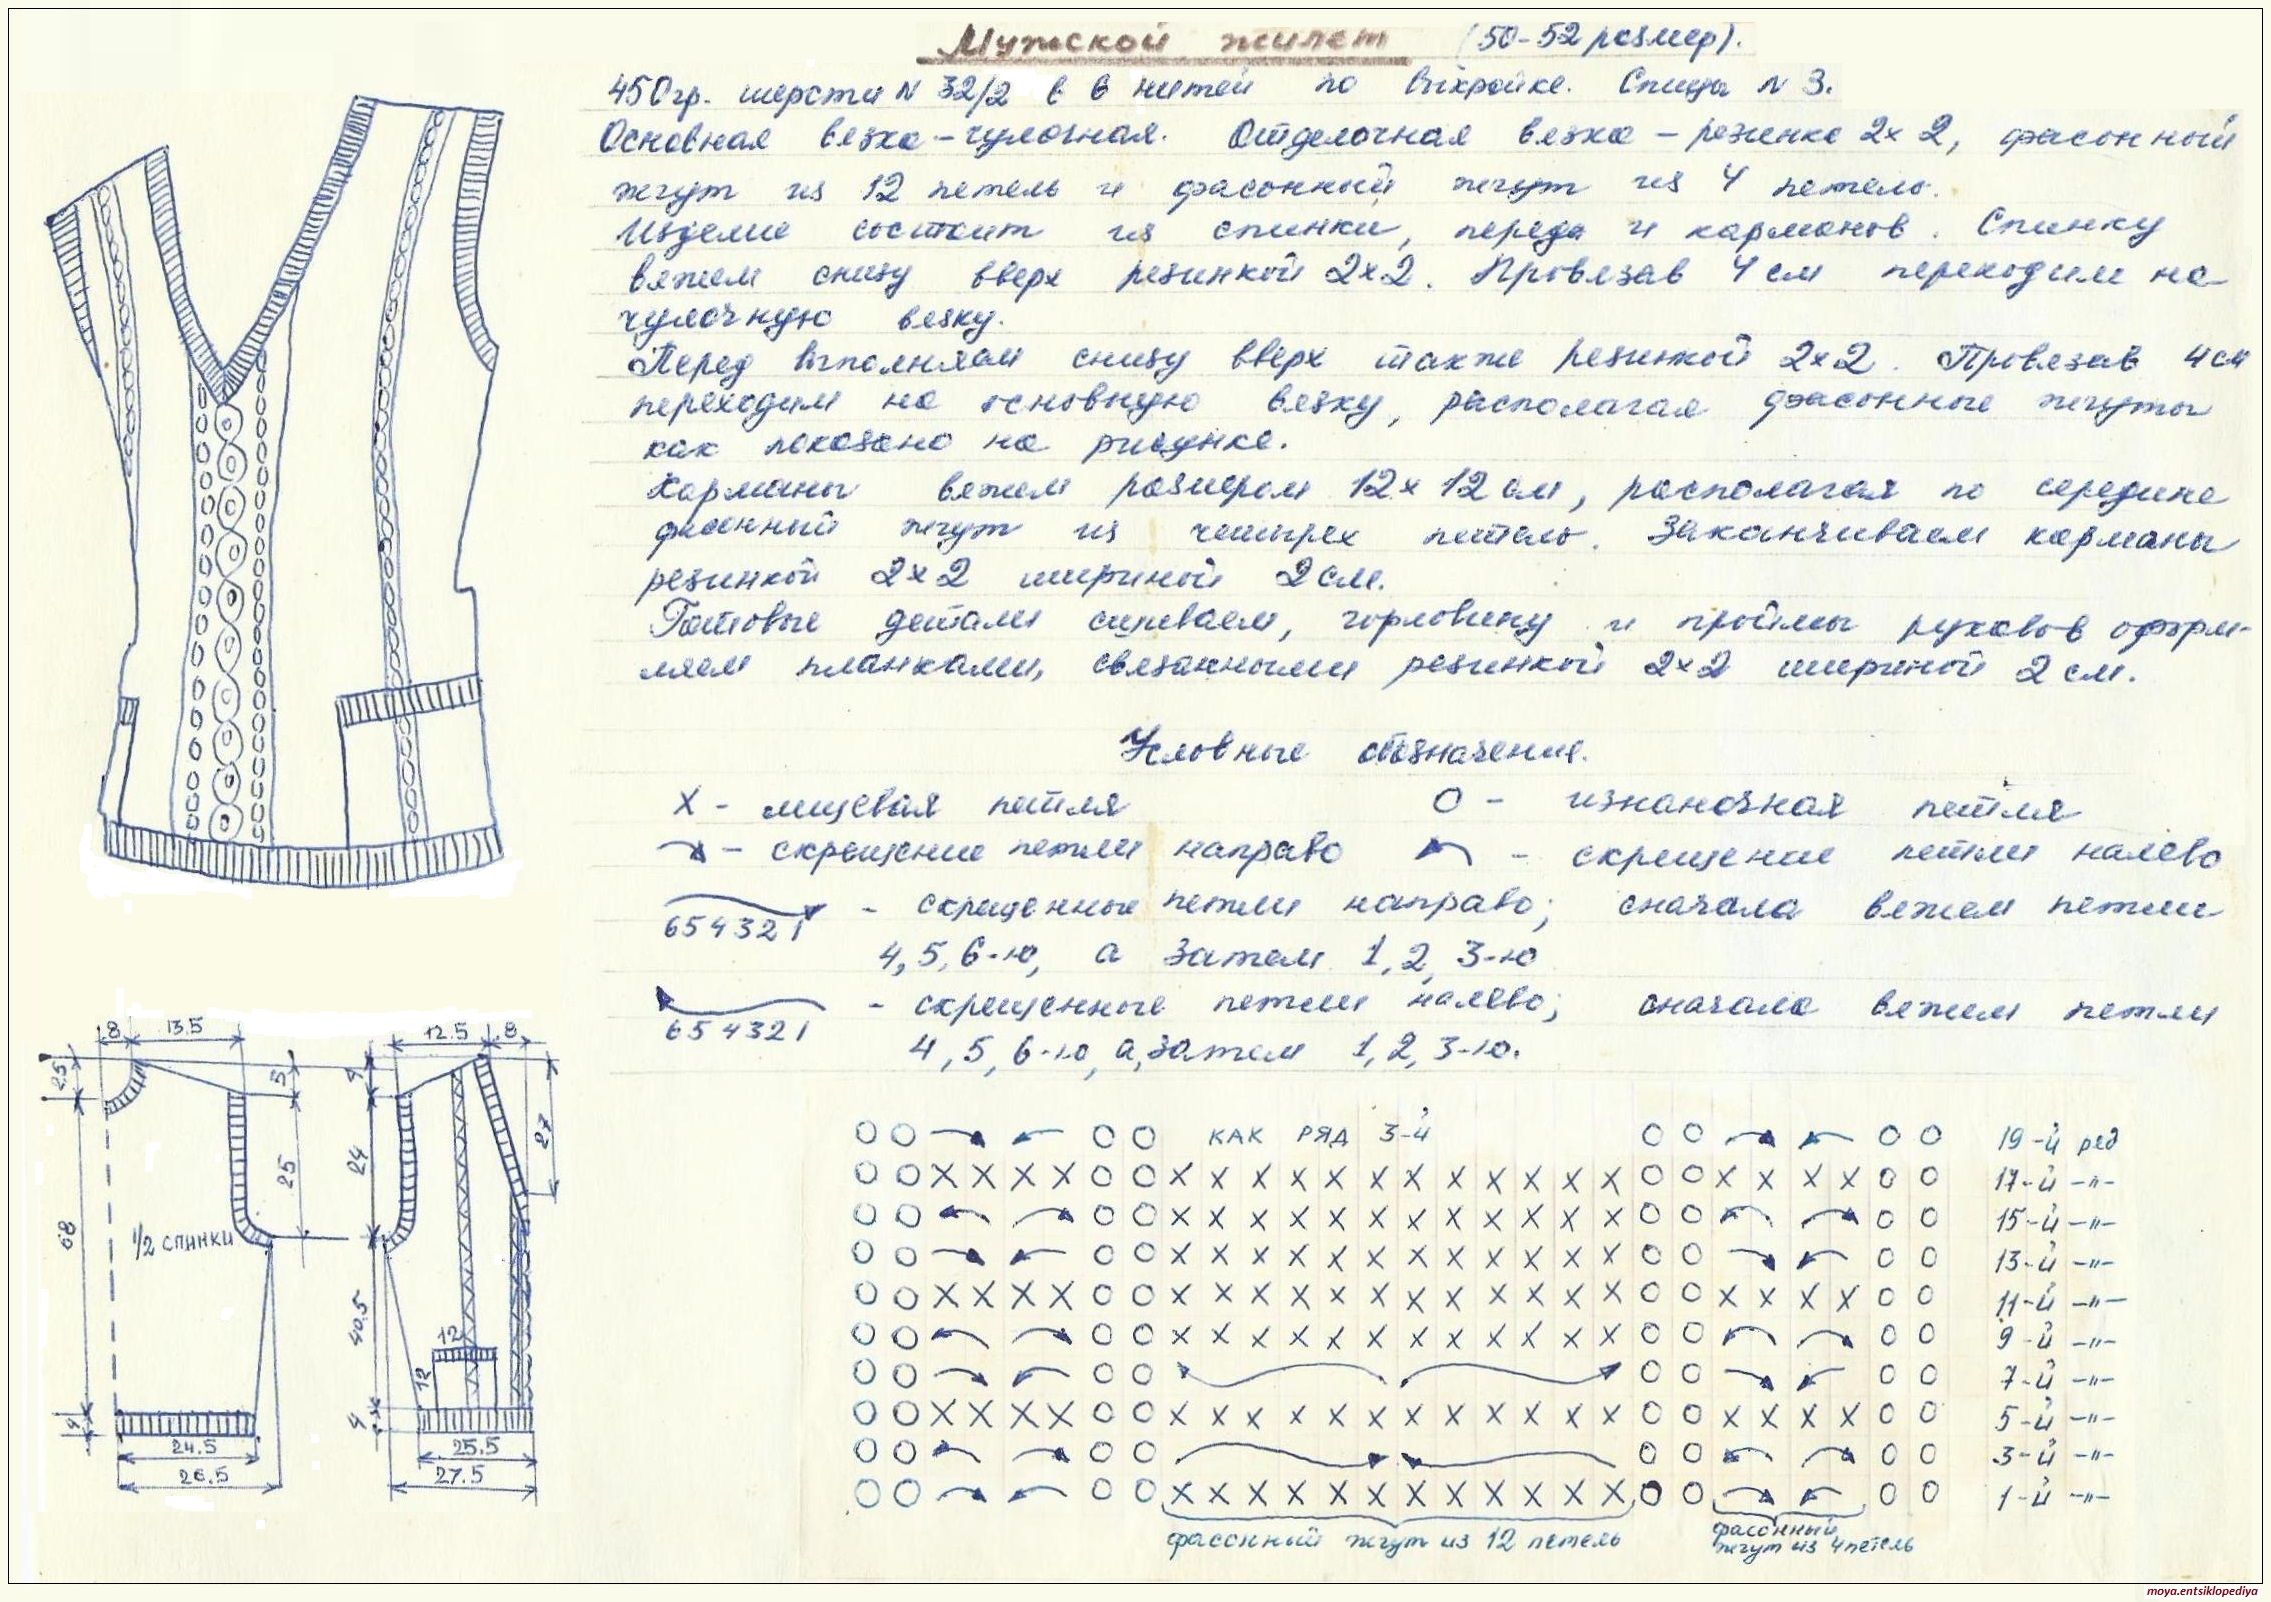 Мужской жилет (50-52 размер).
450гр. шерсти N 32/2 в 6 нитей по выкройке. Спицы N 3.
Основная вязка - чулочная. Отделочная вязка - резинка 2х2, фасонный
жгут из 12 петель и фасонный жгут из 4 петель.
Изделие состоит из спинки, переда и карманов. Спинку
вяжем снизу вверх резинкой 2х2. Провязав 4 см переходим на
чулочную вязку.
Перед выполняем снизу вверх также резинкой 2х2. Провязав 4 см
переходим на основную вязку, располагая фасонные жгуты
как показано на рисунке.
Карманы вяжем размером 12х12 см, располагая по середине
фасонный жгут из четырех петель. Заканчиваем карманы
резинкой 2х2 шириной 2 см.
Готовые детали сшиваем, горловину и проймы рукавов оформ-
ляем планками, связанными резинкой 2х2 шириной 2 см.
Условные обозначения.
X - лицевая петля
O - изнаночная петля
- скрещение петли направо
- скрещение петли налево
654321 - скрещенные петли направо; сначала вяжем петли
4, 5, 6-ю, а затем 1, 2, 3-ю
654321 - скрещенные петли налево; сначала вяжем петли
4, 5, 6-ю, а затем 1, 2, 3-ю.
8 13.5
2.5
5
25
68
1/2 спинки
4
24.5
26.5
12.5 8
4
27
24
40.5
12
12
4
25.5
27.5
O O O O как ряд 3-й O O O O 19-й ряд
O O X X X X O O X X X X X X X X X X X X O O X X X X O O 17-й -"-
O O O O X X X X X X X X X X X X O O O O 15-й -"-
O O O O X X X X X X X X X X X X O O O O 13-й -"-
O O X X X X O O X X X X X X X X X X X X O O X X X X O O 11-й -"-
O O O O X X X X X X X X X X X X O O O O 9-й -"-
O O O O O O O O 7-й -"-
O O X X X X O O X X X X X X X X X X X X O O X X X X O O 5-й -"-
O O O O O O O O 3-й -"-
O O O O X X X X X X X X X X X X O O O O 1-й -"-
фасонный жгут из 12 петель
фасонный
жгут из 4 петель
moya.entsiklopediya